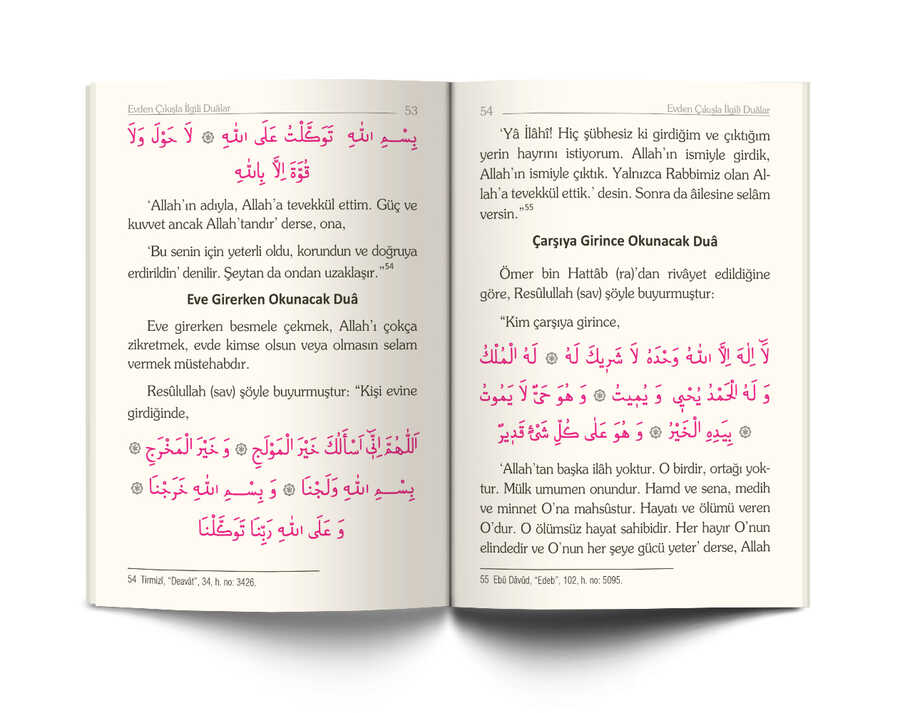 Evden Çıkışla İlgili Duâlar 53
بِسْــمِ اللهِ تَوَكَّلْتُ عَلَى اللهِ ۞ لَا حَوْلَ وَلَا
قُوَّةَ اِلَّا بِاللهِ
‘Allah’ın adıyla, Allah’a tevekkül ettim. Güç ve
kuvvet ancak Allah’tandır’ derse, ona,
‘Bu senin için yeterli oldu, korundun ve doğruya
erdirildin’ denilir. Şeytan da ondan uzaklaşır.”54
Eve Girerken Okunacak Duâ
Eve girerken besmele çekmek, Allah’ı çokça
zikretmek, evde kimse olsun veya olmasın selam
vermek müstehabdır.
Resûlullah (sav) şöyle buyurmuştur: “Kişi evine
girdiğinde,
اَللّٰهُمَّ اِنِّي اَسْأَلُكَ خَيْرَ الْمَوْلَجِ ۞ وَ خَيْرَ الْمَخْرَجِ ۞
بِسْــمِ اللهِ وَلَجْنَا ۞ وَ بِسْــمِ اللهِ خَرَجْنَا ۞
وَ عَلَى اللهِ رَبِّنَا تَوَكَّلْنَا
54 Tirmizî, “Deavât”, 34, h. no: 3426.
54 Evden Çıkışla İlgili Duâlar
‘Yâ İlâhî! Hiç şübhesiz ki girdiğim ve çıktığım
yerin hayrını istiyorum. Allah’ın ismiyle girdik,
Allah’ın ismiyle çıktık. Yalnızca Rabbimiz olan Al-
lah’a tevekkül ettik.’ desin. Sonra da âilesine selâm
versin.”55
Çarşıya Girince Okunacak Duâ
Ömer bin Hattâb (ra)’dan rivâyet edildiğine
göre, Resûlullah (sav) şöyle buyurmuştur:
“Kim çarşıya girince,
لَا اِلٰهَ اِلَّا اللهُ وَحْدَهُ لَا شَرِيكَ لَهُ ۞ لَهُ الْمُلْكُ
وَ لَهُ الْحَمْدُ يُحْيِي وَ يُمِيتُ ۞ وَ هُوَ حَيٌّ لَا يَمُوتُ
۞ بِيَدِهِ الْخَيْرُ ۞ وَ هُوَ عَلٰى كُلِّ شَيْءٍ قَدِيرٌ
‘Allah’tan başka ilâh yoktur. O birdir, ortağı yok-
tur. Mülk umumen onundur. Hamd ve sena, medih
ve minnet O’na mahsûstur. Hayatı ve ölümü veren
O’dur. O ölümsüz hayat sahibidir. Her hayır O’nun
elindedir ve O’nun her şeye gücü yeter’ derse, Allah
55 Ebû Dâvûd, “Edeb”, 102, h. no: 5095.